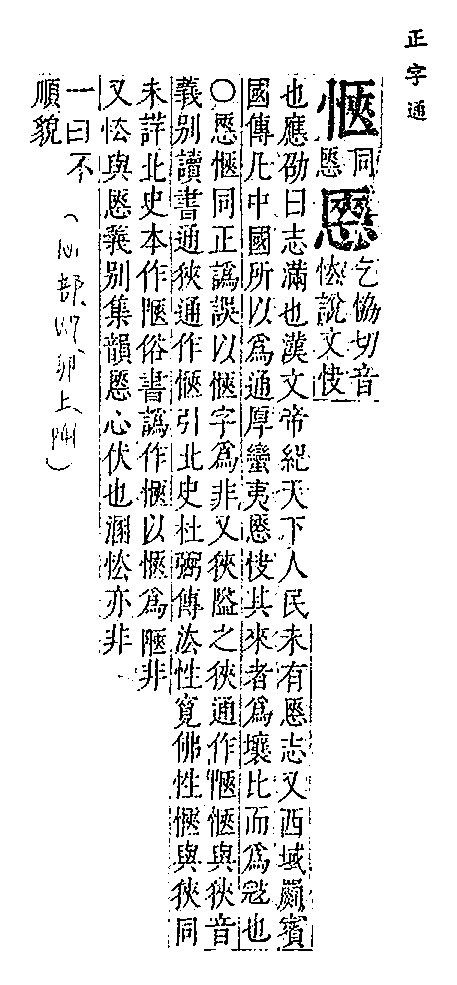 正字通
愜同㥦㥦乞協切音怯說文快
也應劭曰志滿也漢文帝紀天下人民未有㥦志又西域罽賓
國傳凡中國所以爲通厚蠻夷㥦快其求者爲壤比而爲寇也
○㥦愜同正譌誤以愜字爲非又狹隘之狹通作愜愜與狹音
義別讀書通狹通作愜引北史杜弼傳法性寬佛性愜與狹同
未詳北史本作陿俗書譌作愜以愜爲陿非
又怯與㥦義別集韻㥦心伏也溷怯亦非
一曰不
順貌
（心部 卯上）